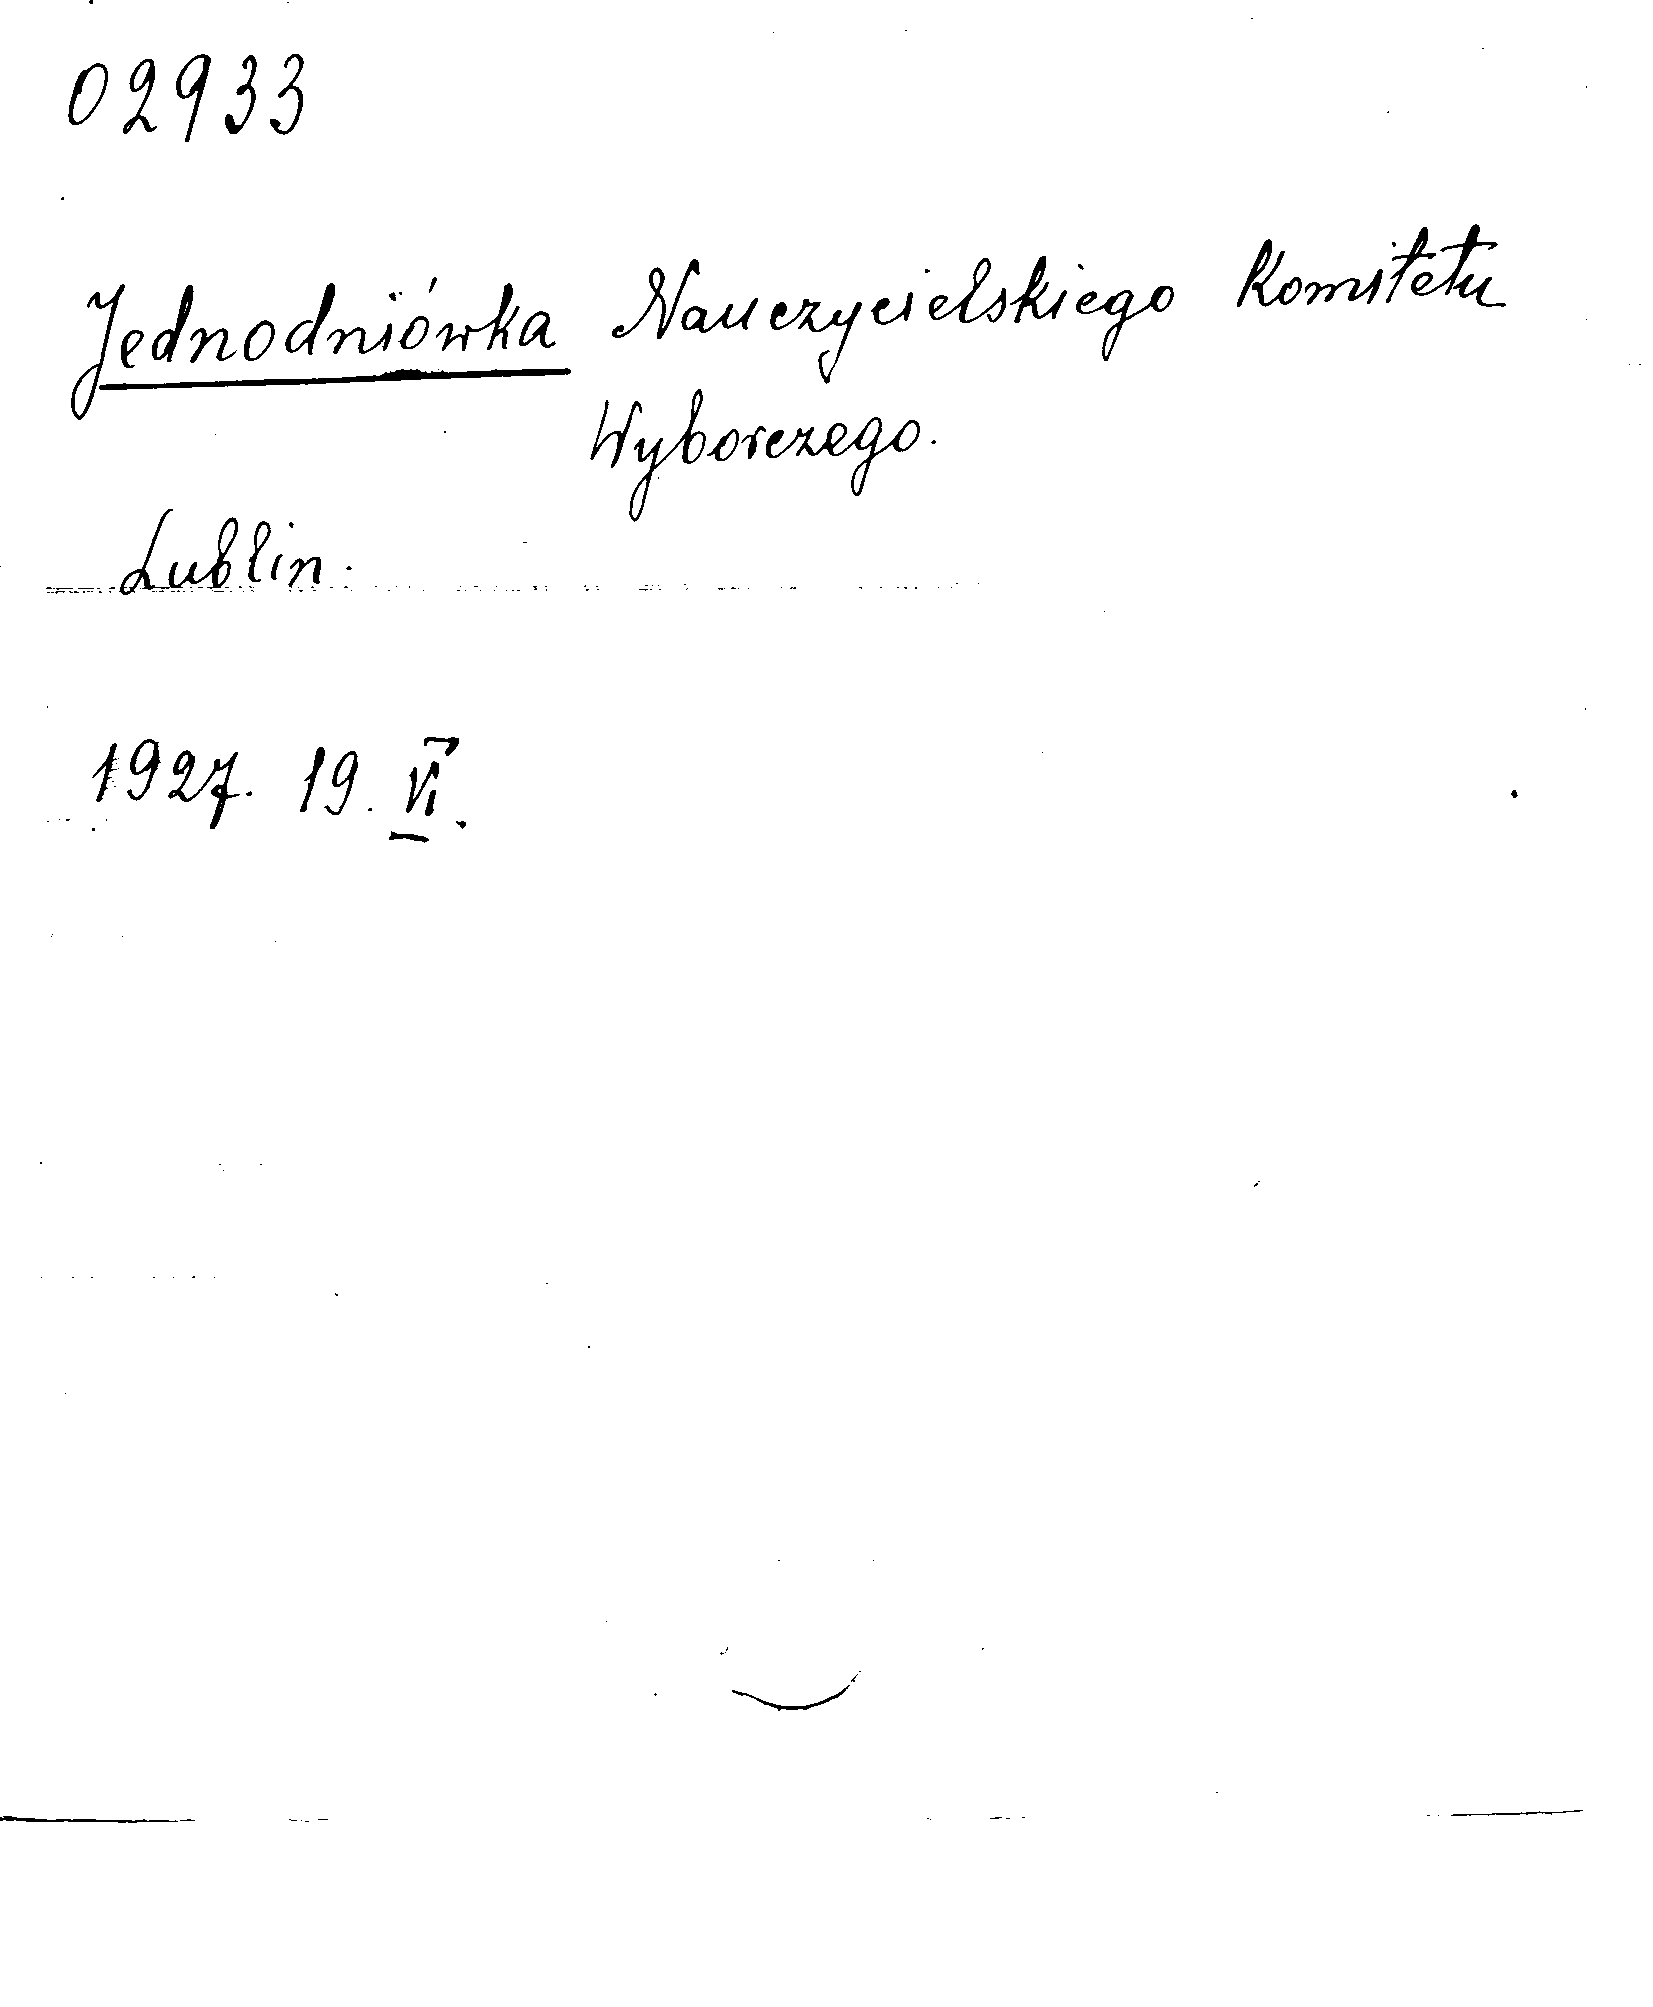 02933
Jednodniówka Nauczycielskiego Komitetu
Wyborczego.
Lublin.
1927. 19. VI.